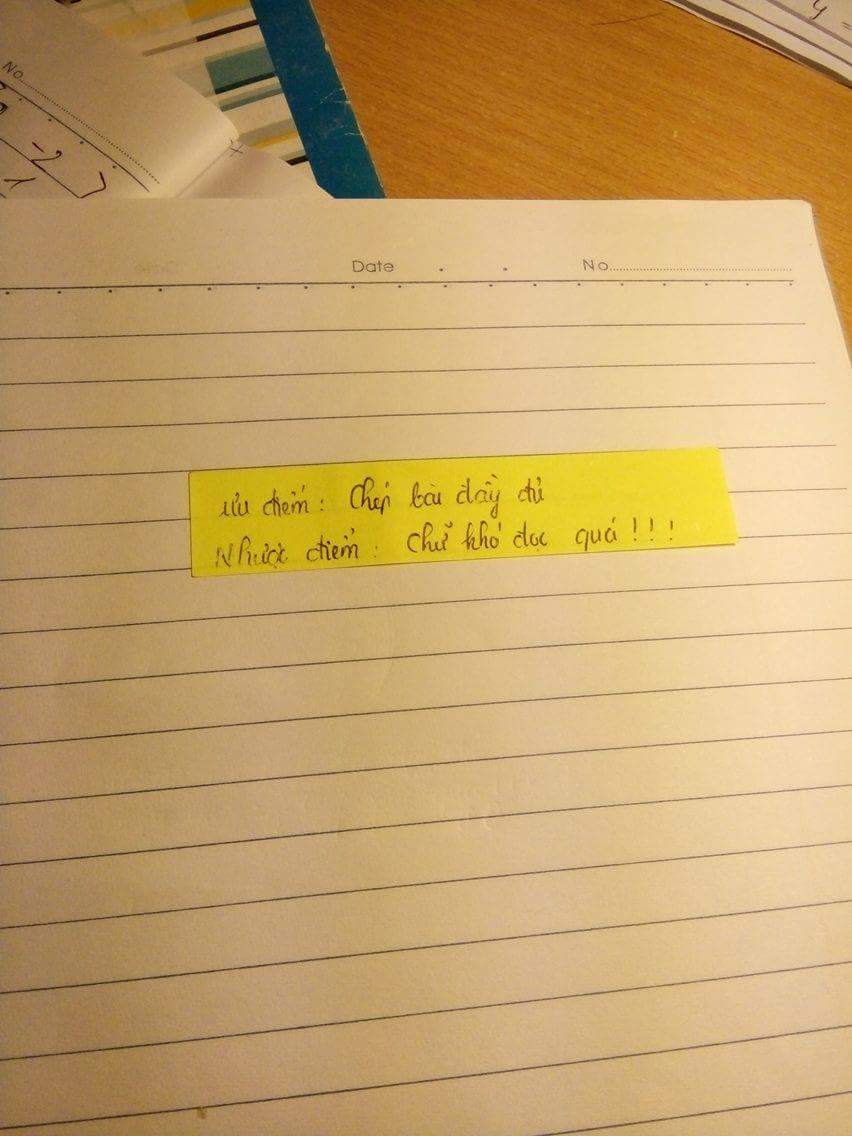 No
-2
1
y =
Date . . No
Ưu điểm : Chép bài đầy đủ
Nhược điểm : Chữ khó đọc quá ! ! !